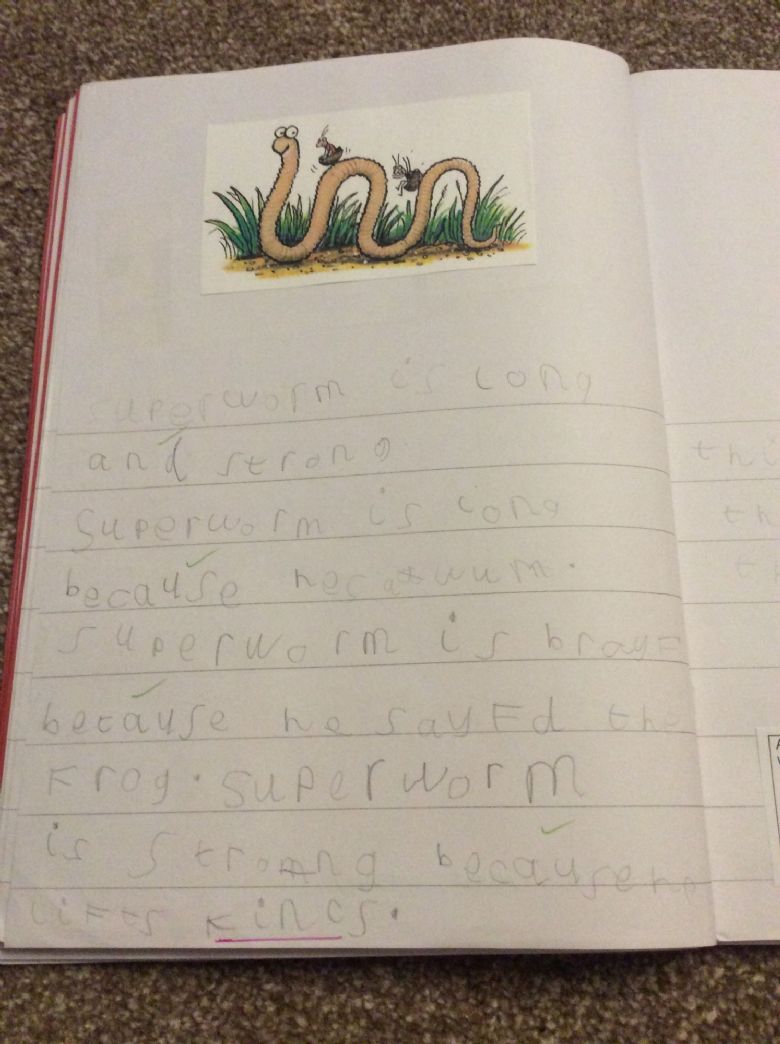 superworm is long
and strong
Superworm is long
because wum.
superworm is brayF
because he sayFd the
Frog. superworm
is strong because he
liFts Kincs.
thi
th
th